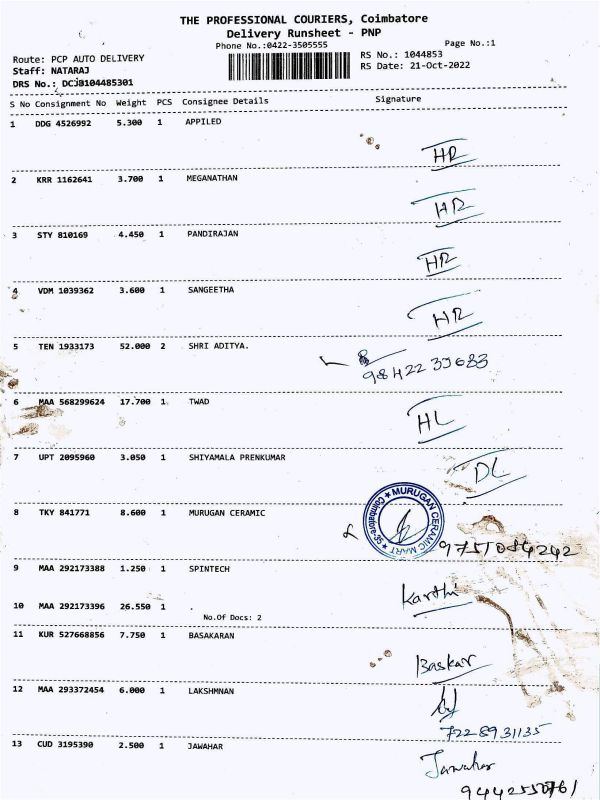 THE PROFESSIONAL COURIERS, Coimbatore
Delivery Runsheet - PNP
Phone No.:0422-3505555
Page No.:1
Route: PCP AUTO DELIVERY
RS No.: 1044853
Staff: NATARAJ
RS Date: 21-Oct-2022
DRS No.: DCJB104485301
S No Consignment No Weight PCS Consignee Details Signature
1 DDG 4526992 5.300 1 APPILED
HR
2 KRR 1162641 3.700 1 MEGANATHAN
HR
3 STY 810169 4.450 1 PANDIRAJAN
HR
4 VDM 1039362 3.600 1 SANGEETHA
HR
5 TEN 1933173 52.000 2 SHRI ADITYA.
6 MAA 568299624 17.700 1 TWAD
HL
7 UPT 2095960 3.050 1 SHIYAMALA PRENKUMAR
DL
8 TKY 841771 8.600 1 MURUGAN CERAMIC
MURUGAN CERAMIC MART
9751084242
9 MAA 292173388 1.250 1 SPINTECH
Karthi
10 MAA 292173396 26.550 1 .
No.Of Docs: 2
11 KUR 527668856 7.750 1 BASAKARAN
Baskar
12 MAA 293372454 6.000 1 LAKSHMNAN
7228931135
13 CUD 3195390 2.500 1 JAWAHAR
Jawahar